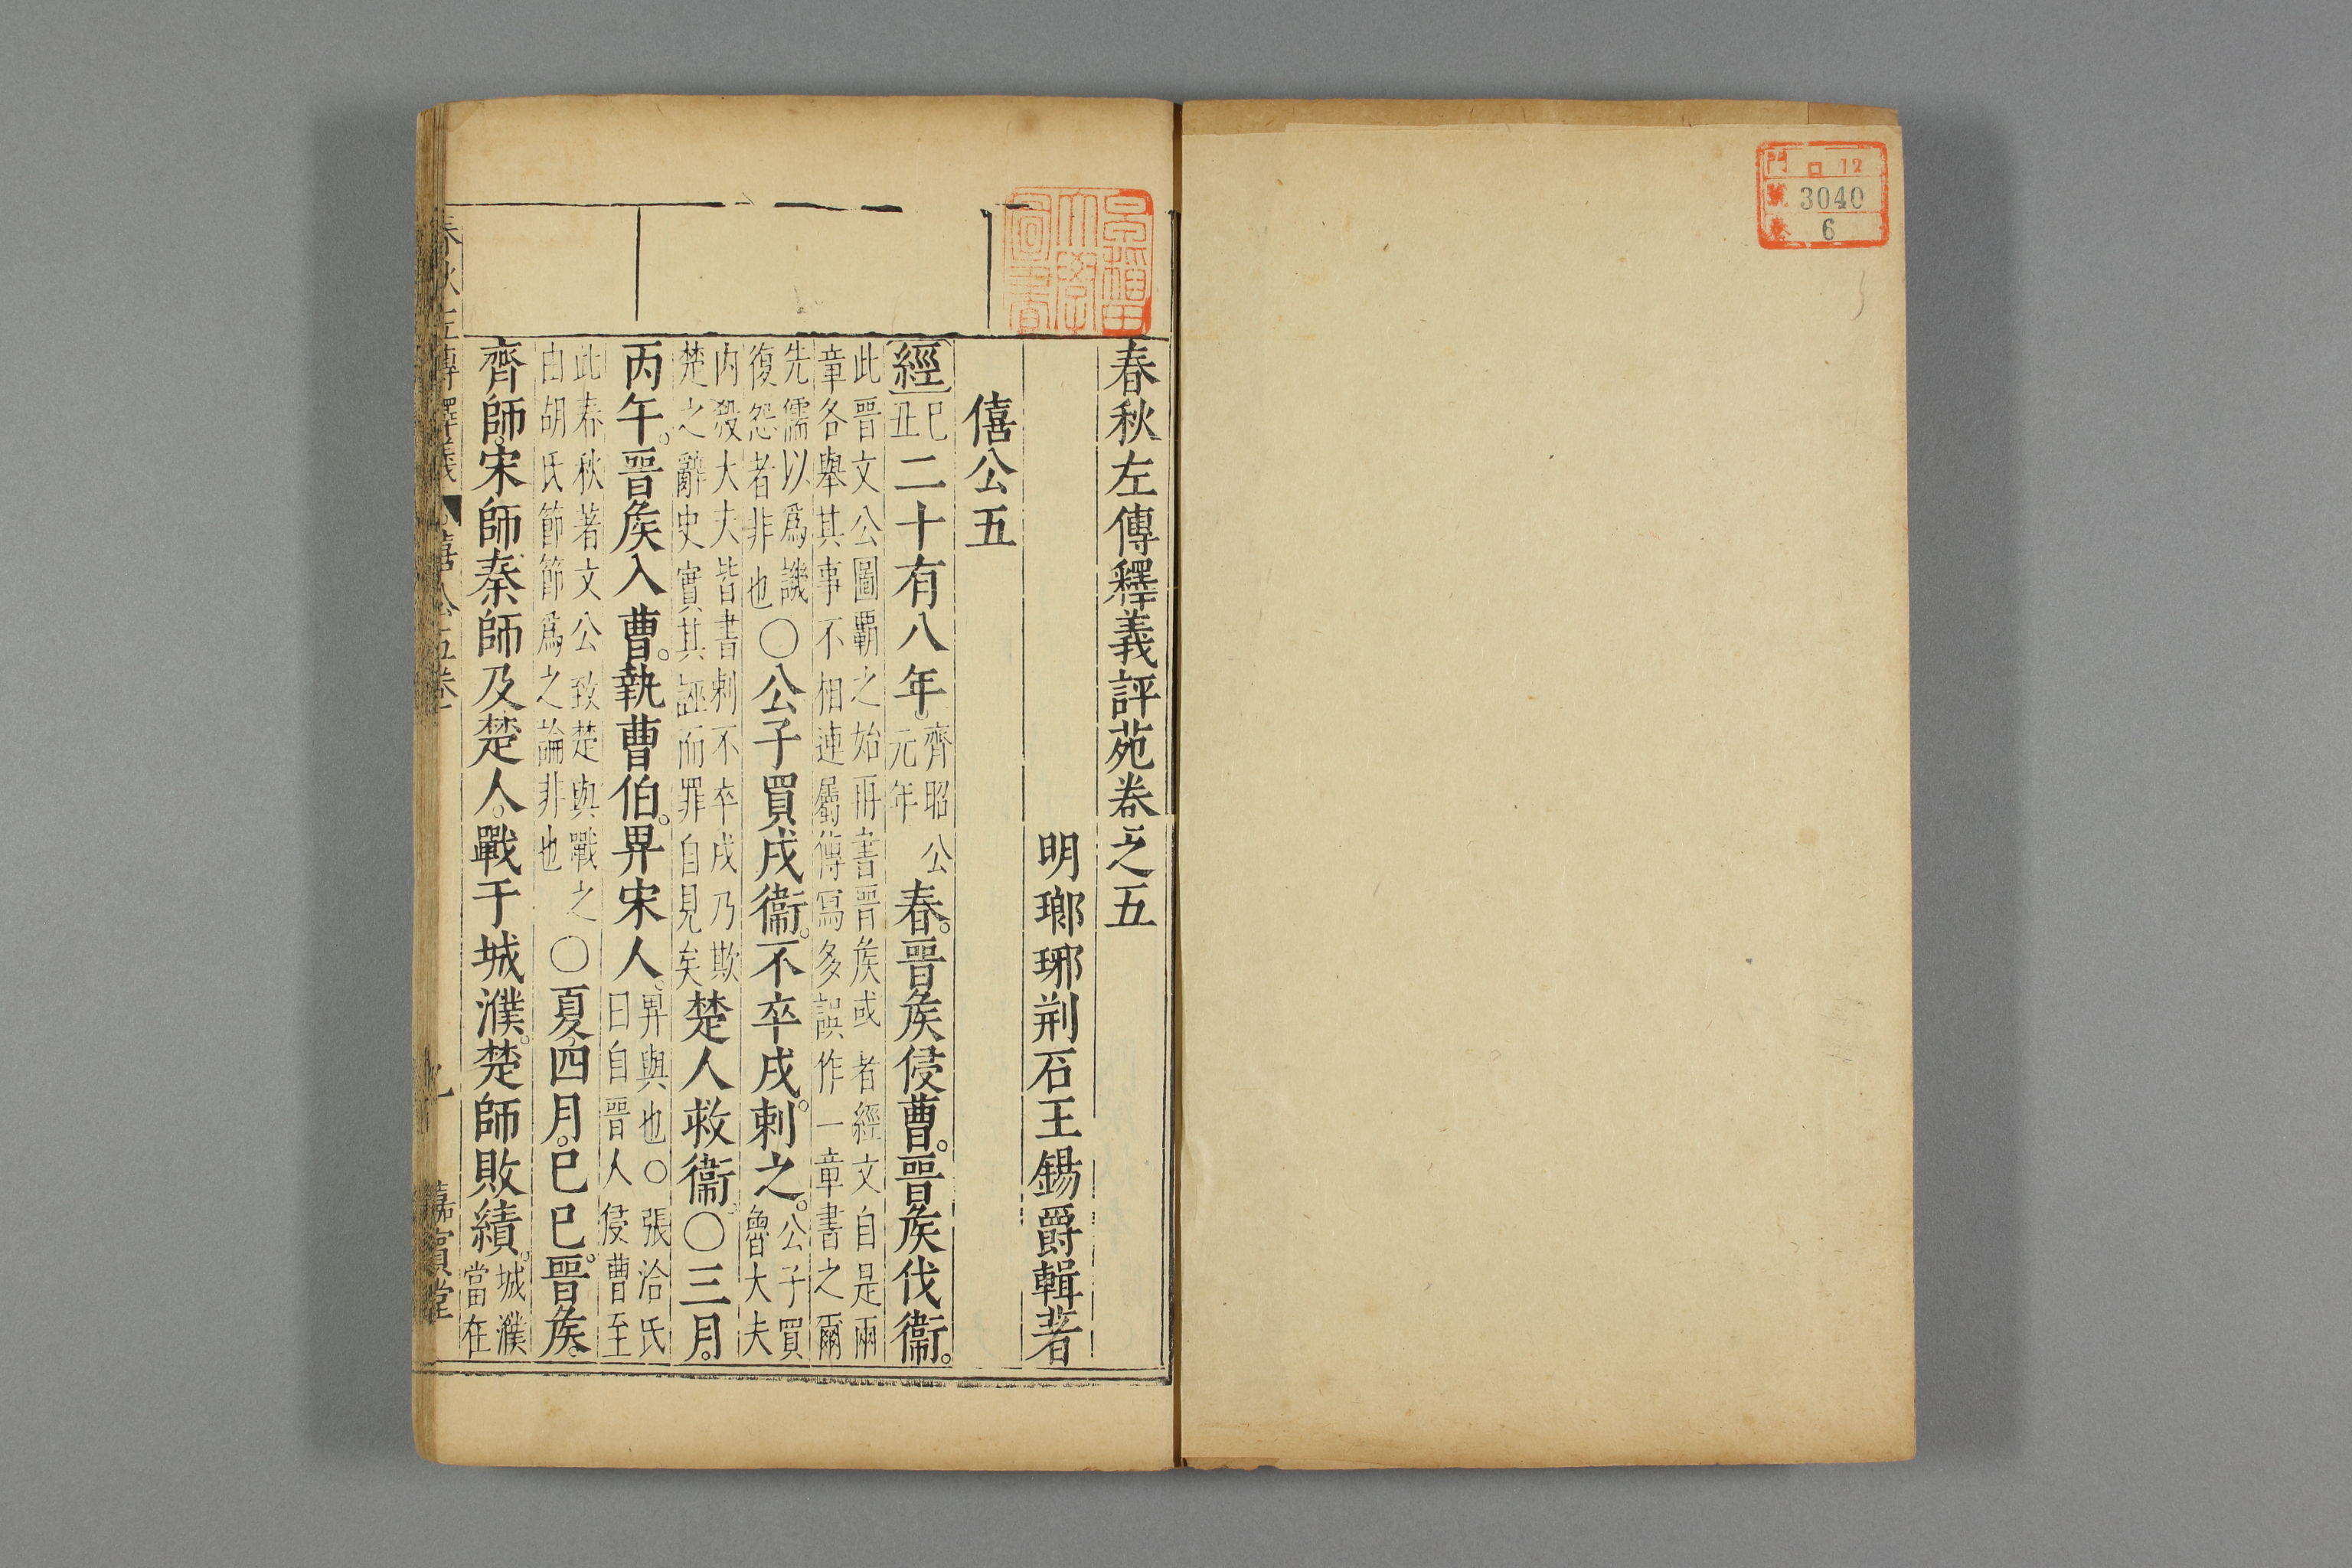 門 ロ 12
號 3040
卷 6
早稲田大學圖書
春秋左傳釋義評苑卷之五
明瑯琊荆石王錫爵輯著
僖公五
經 己丑 二十有八年。齊昭公元年 春。晉矦侵曹。晉矦伐衞。
此晉文公圖覇之始再書晉矦或者經文自是兩
章各舉其事不相連屬傳寫多誤作一章書之爾
先儒以爲譏
復怨者非也〇公子買戍衞。不卒戍。刺之。公子買魯大夫
内殺大夫皆書刺不卒戍乃欺
楚之辭史實其誣而罪自見矣 楚人救衞。〇三月。
丙午。晉矦入曹。執曹伯。畀宋人。畀與也〇張洽氏曰自晉人侵曹至
此春秋著文公致楚與戰之
由胡氏節節爲之論非也 〇夏四月。己巳。晉矦。
齊師。宋師。秦師及楚人。戰于城濮。楚師敗績。城濮當在
春秋左傳釋義 僖公五卷 一 嘉賓堂